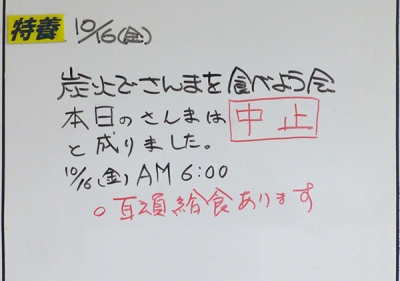 特養 10/16(金)
炭火でさんまを食べよう会
本日のさんまは 中止
と成りました。
10/16(金) AM 6:00
○ 給食あります